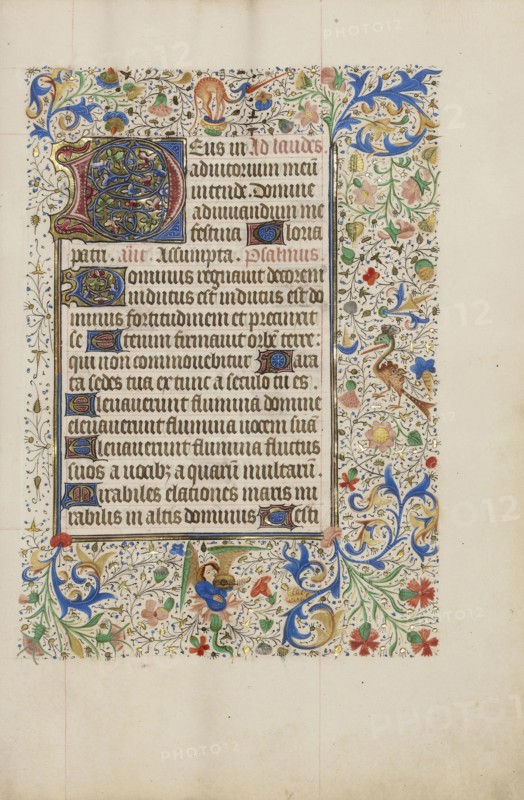 Deus in Ad laudes
adiutorium meū
intende. Domine
ad iuuandum me
festina Gloria
patri. añt. Assumpta. Psalmus.
Dominus regnauit decorem
indutus est indutus est do
minus fortitudinem et precinxit
se Etenim firmauit orbē terre:
qui non commouebitur Para
ta sedes tua ex tunc a seculo tu es.
Eleuauerunt flumina domine
eleuauerunt flumina uocem suā
Eleuauerunt flumina fluctus
suos a uocibꝫ aquarū multarū.
Mirabiles elationes maris mi
rabilis in altis dominus Testi
PHOTO12